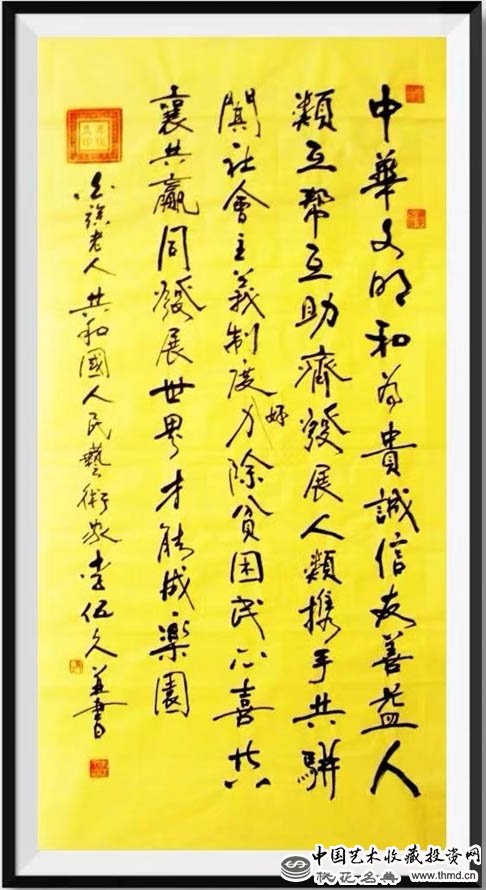 中華文明和為貴誠信友善益人
類互帮互助齊發展人類携手共駢
闐社會主義制度好力除貧困民心喜共
襄共贏同發展世界才能成樂園
老人共和國人民藝術家李伍久書
中国艺术收藏投资网
桃花名典 www.thmd.cn